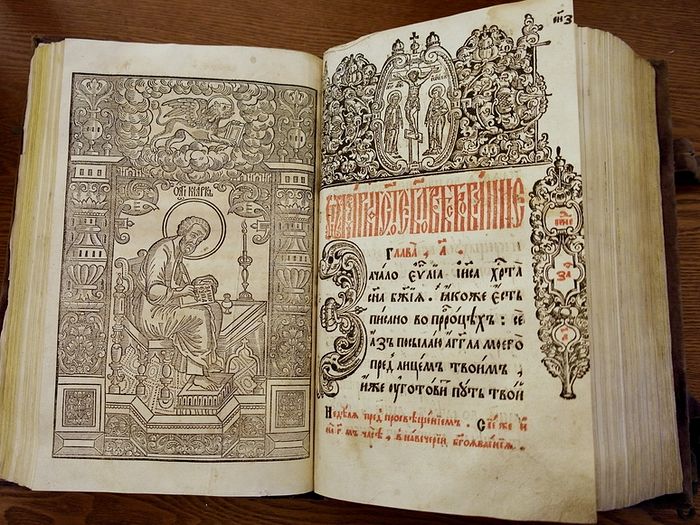 МАРКЪ
Глава̀, а҃.
Зачало еѵⷢ҇лїѧ і҆и҃са хрⷭ҇та̀
сн҃а бж҃їѧ . ꙗ҆коже є҆сть
писано во прⷪ҇ро́цѣхъ : сѐ
а҆зъ посылаю а҆́гг҃ла моего̀
пред̾ лицемъ твоимъ ,
и҆́же оуготовитъ путь твой
Недѣлѧ пред̾ просвѣщенїемъ . Сїе же и҆
на г҃мъ часѣ , в навечерїи бг҃оѧвленїѧ .